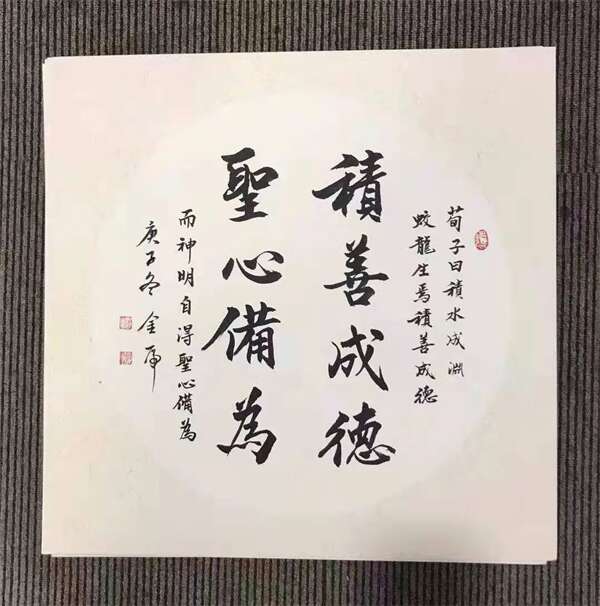 荀子曰積水成淵
蛟龍生焉積善成德
積善成德
聖心備為
而神明自得聖心備為
庚子冬金虎